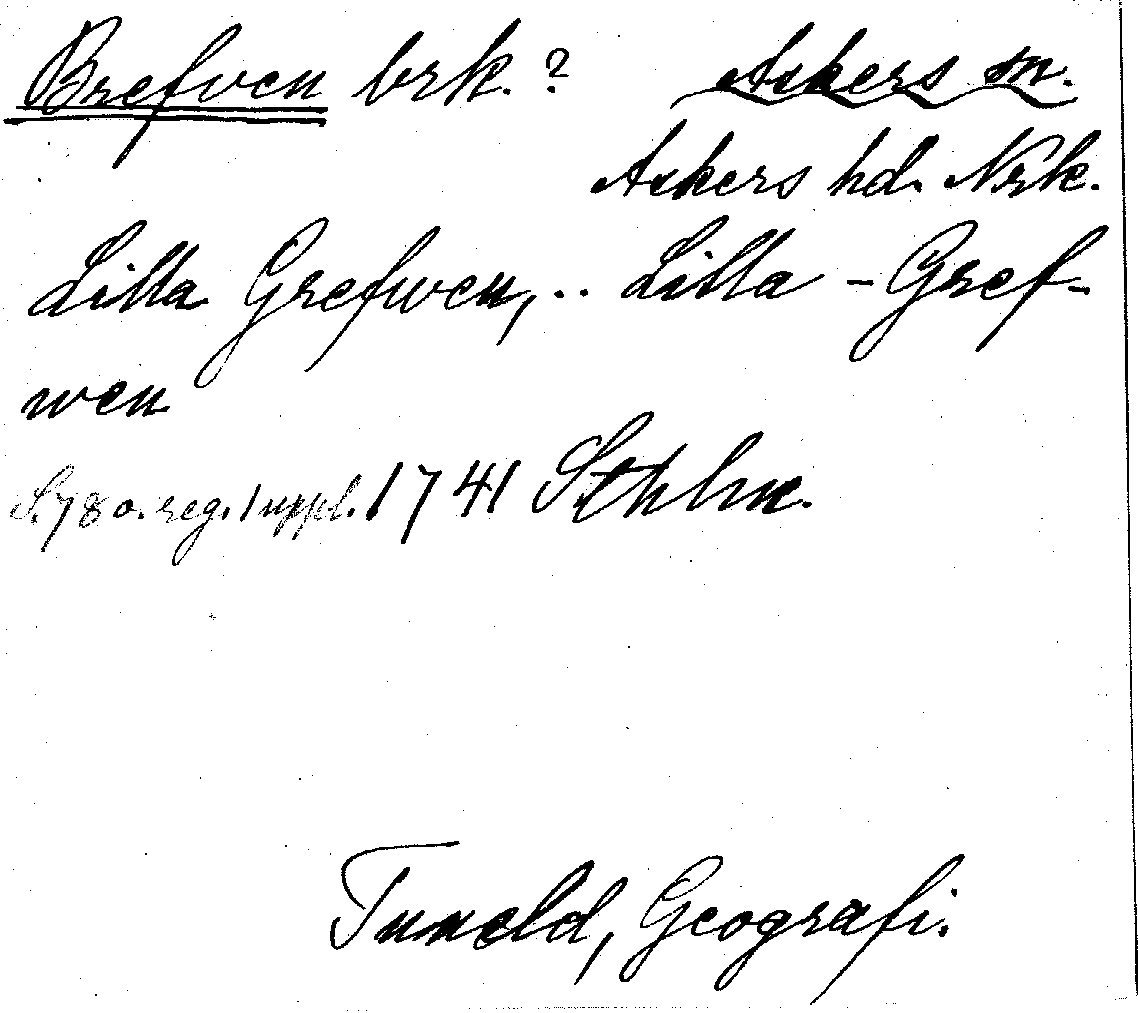 Brefven brk.? Askers sn.
Askers hd. Nrk.
Lilla Grefwen, .. Lilla - Gref-
wen
S. 78 o. reg. suppl. 1741 Sthlm.
Tuneld, Geografi.